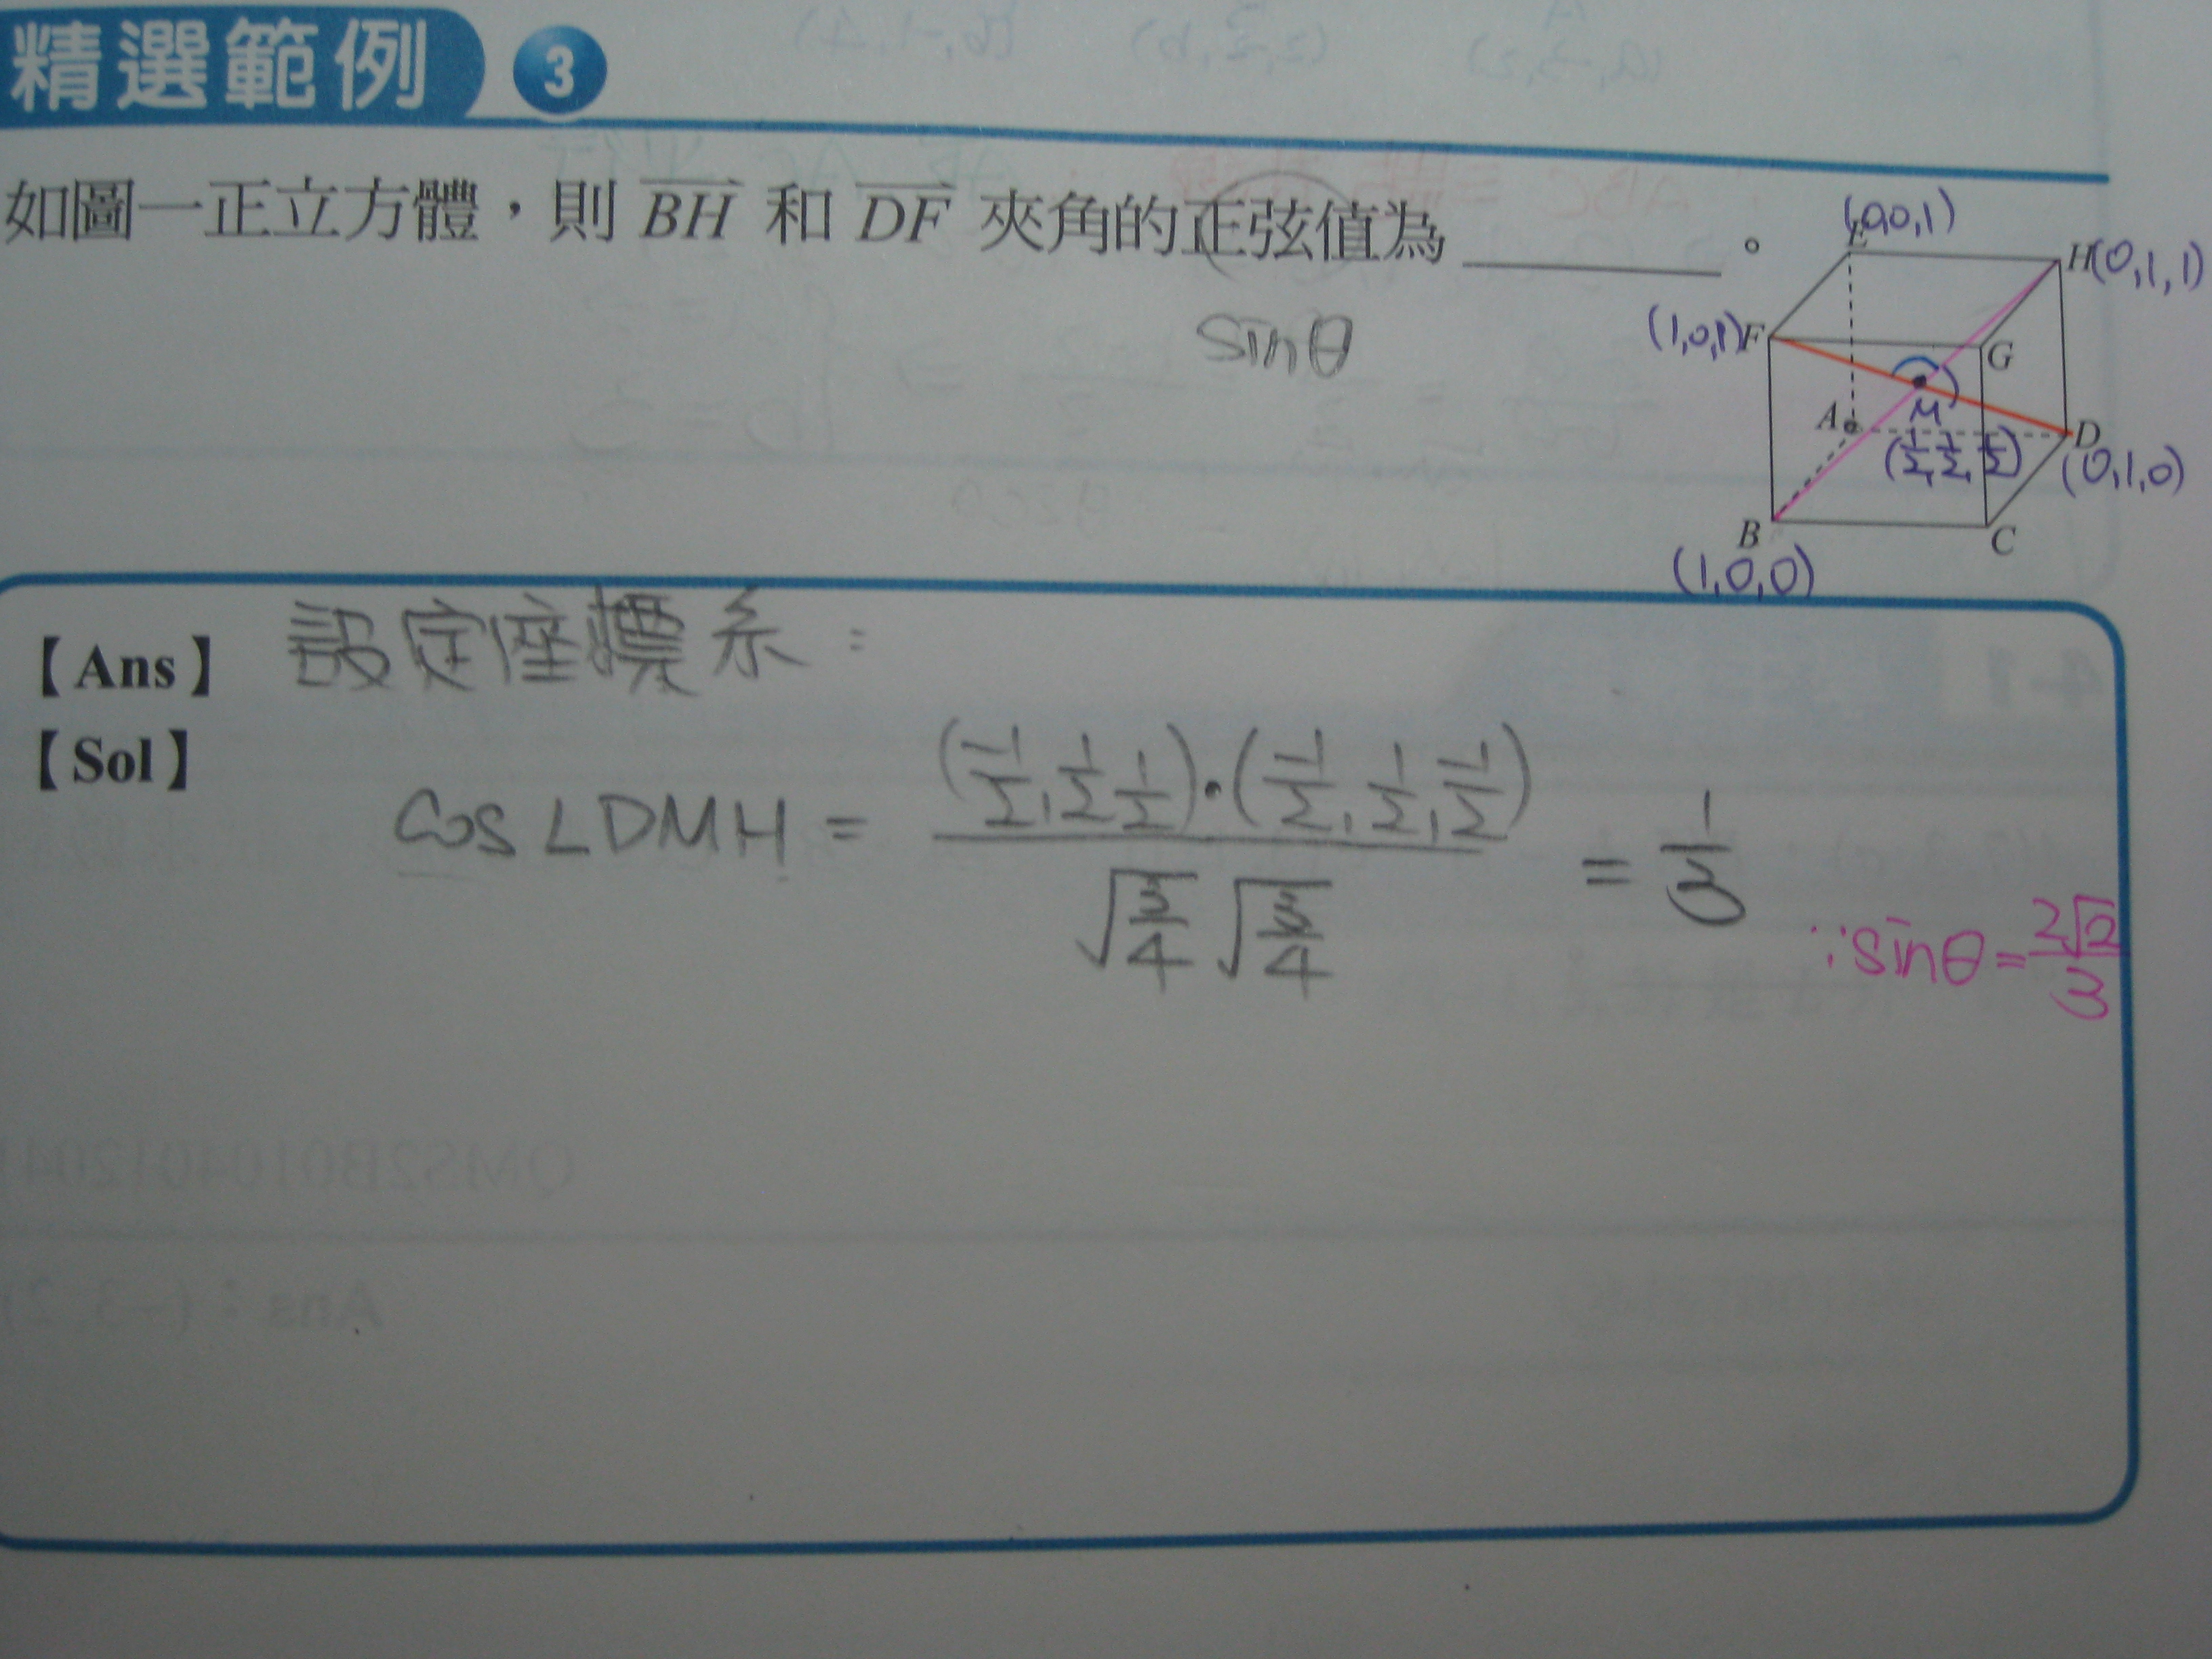 精選範例 3
如圖一正立方體，則 BH 和 DF 夾角的正弦值為________。
sinθ
(0,0,1)
E
H(0,1,1)
(1,0,1)F
G
A
M
D
(1/2,1/2,1/2)
(0,1,0)
B
C
(1,0,0)
【Ans】設定座標系：
【Sol】
cos∠DMH = (-1/2,1/2,1/2)·(-1/2,1/2,-1/2) / √(3/4) √(3/4) = 1/3
∵sinθ=2√2/3